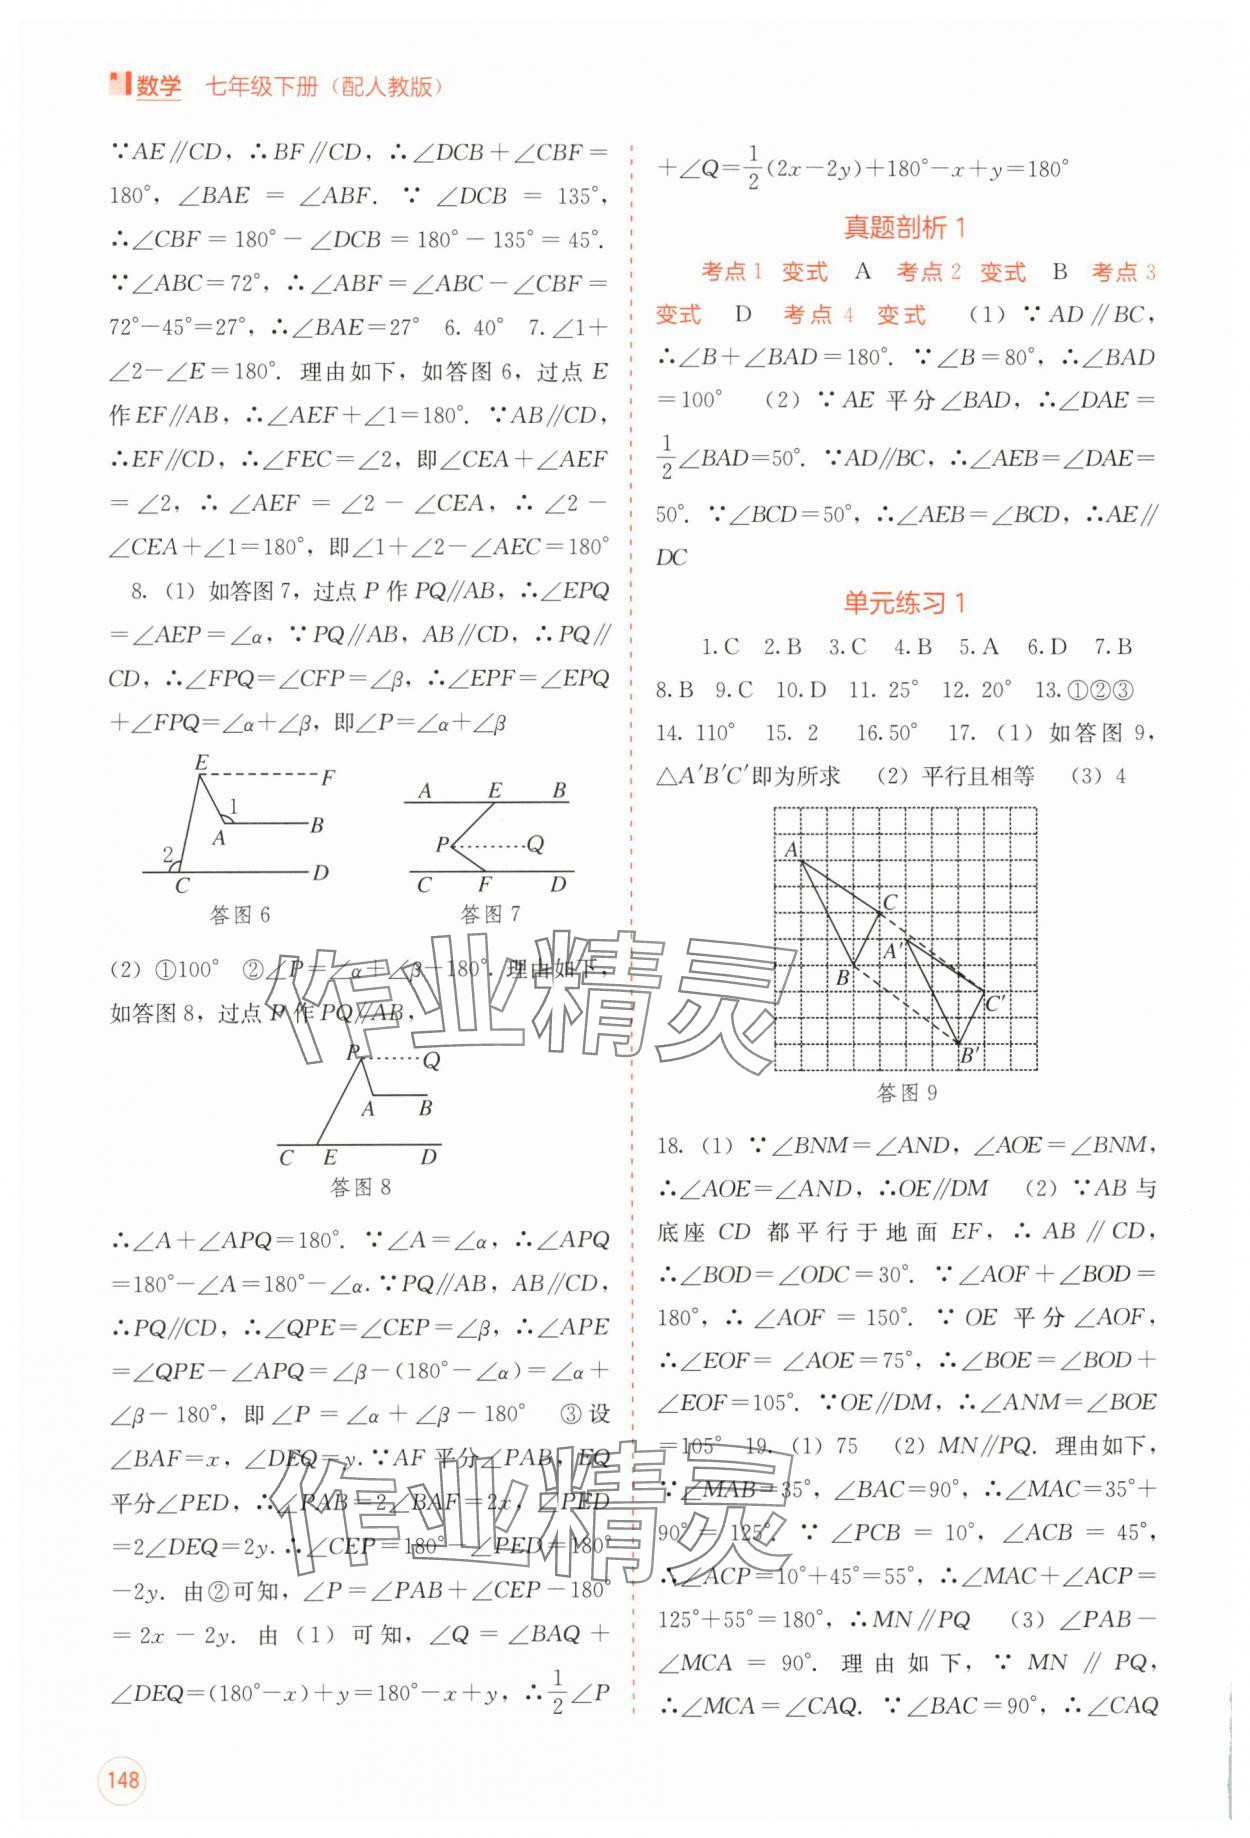 数学 七年级下册（配人教版）
∵AE∥CD，∴BF∥CD，∴∠DCB＋∠CBF＝
180°，∠BAE＝∠ABF．∵∠DCB＝135°，
∴∠CBF＝180°－∠DCB＝180°－135°＝45°．
∵∠ABC＝72°，∴∠ABF＝∠ABC－∠CBF＝
72°－45°＝27°，∴∠BAE＝27° 6. 40° 7. ∠1＋
∠2－∠E＝180°．理由如下，如答图6，过点E
作EF∥AB，∴∠AEF＋∠1＝180°．∵AB∥CD，
∴EF∥CD，∴∠FEC＝∠2，即∠CEA＋∠AEF
＝∠2，∴∠AEF＝∠2－∠CEA，∴∠2－
∠CEA＋∠1＝180°，即∠1＋∠2－∠AEC＝180°
8. （1）如答图7，过点P作PQ∥AB，∴∠EPQ
＝∠AEP＝∠α，∵PQ∥AB，AB∥CD，∴PQ∥
CD，∴∠FPQ＝∠CFP＝∠β，∴∠EPF＝∠EPQ
＋∠FPQ＝∠α＋∠β，即∠P＝∠α＋∠β
E F
1
A B
2
C D
答图6
A E B
P Q
C F D
答图7
（2）①100° ②∠P＝∠α＋∠β－180°．理由如下，
如答图8，过点P作PQ∥AB，
P Q
A B
C E D
答图8
∴∠A＋∠APQ＝180°．∵∠A＝∠α，∴∠APQ
＝180°－∠A＝180°－∠α．∵PQ∥AB，AB∥CD，
∴PQ∥CD，∴∠QPE＝∠CEP＝∠β，∴∠APE
＝∠QPE－∠APQ＝∠β－(180°－∠α)＝∠α＋
∠β－180°，即∠P＝∠α＋∠β－180° ③设
∠BAF＝x，∠DEQ＝y．∵AF平分∠PAB，EQ
平分∠PED，∴∠PAB＝2∠BAF＝2x，∠PED
＝2∠DEQ＝2y．∴∠CEP＝180°－∠PED＝180°
－2y．由②可知，∠P＝∠PAB＋∠CEP－180°
＝2x－2y．由（1）可知，∠Q＝∠BAQ＋
∠DEQ＝(180°－x)＋y＝180°－x＋y，∴1/2∠P
＋∠Q＝1/2(2x－2y)＋180°－x＋y＝180°
真题剖析1
考点1 变式 A 考点2 变式 B 考点3
变式 D 考点4 变式 （1）∵AD∥BC，
∴∠B＋∠BAD＝180°．∵∠B＝80°，∴∠BAD
＝100° （2）∵AE平分∠BAD，∴∠DAE＝
1/2∠BAD＝50°．∵AD∥BC，∴∠AEB＝∠DAE＝
50°．∵∠BCD＝50°，∴∠AEB＝∠BCD，∴AE∥
DC
单元练习1
1. C 2. B 3. C 4. B 5. A 6. D 7. B
8. B 9. C 10. D 11. 25° 12. 20° 13. ①②③
14. 110° 15. 2 16. 50° 17. （1）如答图9，
△A′B′C′即为所求 （2）平行且相等 （3）4
A
C
A′
B
C′
B′
答图9
18. （1）∵∠BNM＝∠AND，∠AOE＝∠BNM，
∴∠AOE＝∠AND，∴OE∥DM （2）∵AB与
底座CD都平行于地面EF，∴AB∥CD，
∴∠BOD＝∠ODC＝30°．∵∠AOF＋∠BOD＝
180°，∴∠AOF＝150°．∵OE平分∠AOF，
∴∠EOF＝∠AOE＝75°，∴∠BOE＝∠BOD＋
∠EOF＝105°．∵OE∥DM，∴∠ANM＝∠BOE
＝105° 19. （1）75 （2）MN∥PQ．理由如下，
∵∠MAB＝35°，∠BAC＝90°，∴∠MAC＝35°＋
90°＝125°．∵∠PCB＝10°，∠ACB＝45°，
∴∠ACP＝10°＋45°＝55°，∴∠MAC＋∠ACP＝
125°＋55°＝180°，∴MN∥PQ （3）∠PAB－
∠MCA＝90°．理由如下，∵MN∥PQ，
∴∠MCA＝∠CAQ．∵∠BAC＝90°，∴∠CAQ
148
作业精灵
作业精灵